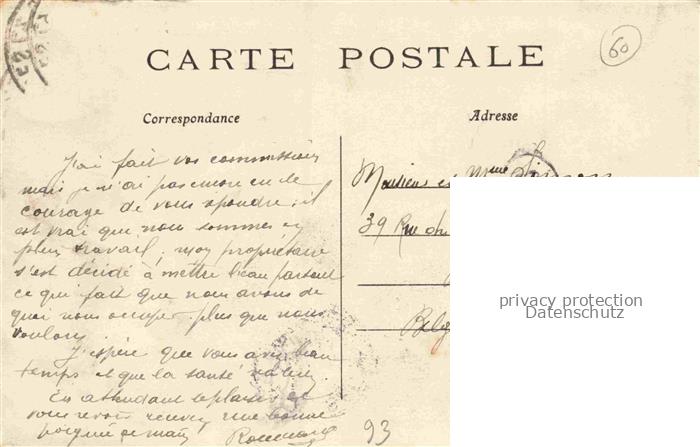 60
CARTE POSTALE
Correspondance
Adresse
J'ai fait vos commissions
mais je n'ai pas encore eu le
courage de vous répondre, il
est vrai que nous sommes en
plein travail, mon propriétaire
s'est décidé à mettre l'eau partout
ce qui fait que nous avons de
quoi nous occuper plus que nous
voulons.
J'espère que vous avez beau
temps et que la santé va bien
En attendant le plaisir de
vous revoir recevez une bonne
poignée de main
Monsieur et Mme
39 Rue du
Belg
93
privacy protection
Datenschutz